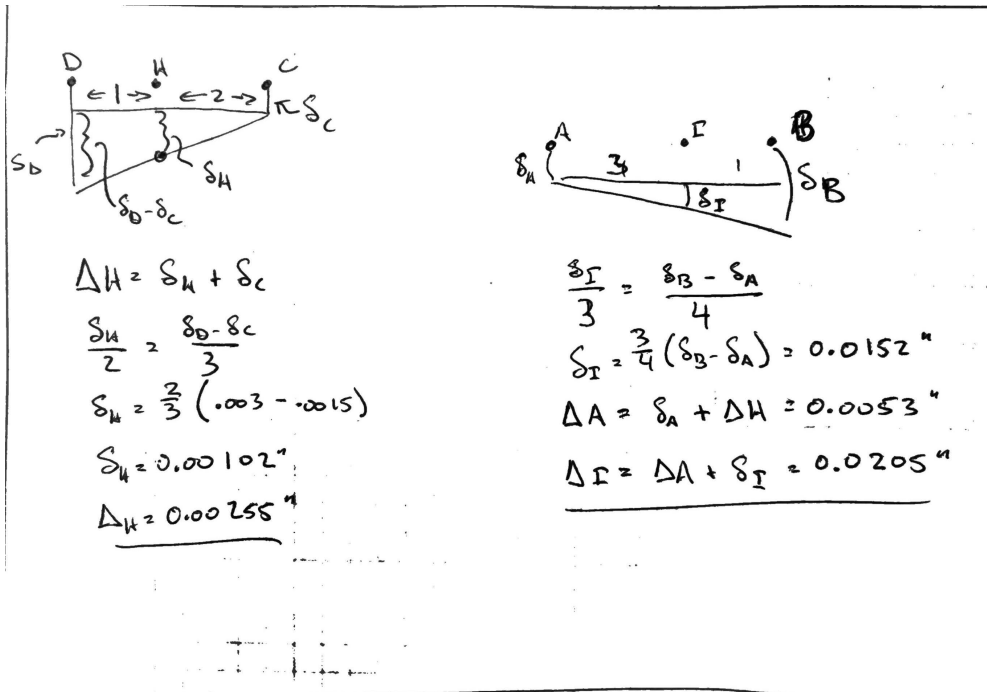 D H C
← 1 → ← 2 →
δ_C
δ_D
δ_H
δ_D - δ_C
ΔH = δ_H + δ_C
δ_H/2 = (δ_D - δ_C)/3
δ_H = 2/3 (.003 - .0015)
δ_H = 0.00102"
Δ_H = 0.00255"
A I B
3 1
δ_A δ_I δ_B
δ_I/3 = (δ_B - δ_A)/4
δ_I = 3/4 (δ_B - δ_A) = 0.0152"
ΔA = δ_A + ΔH = 0.0053"
ΔI = ΔA + δ_I = 0.0205"